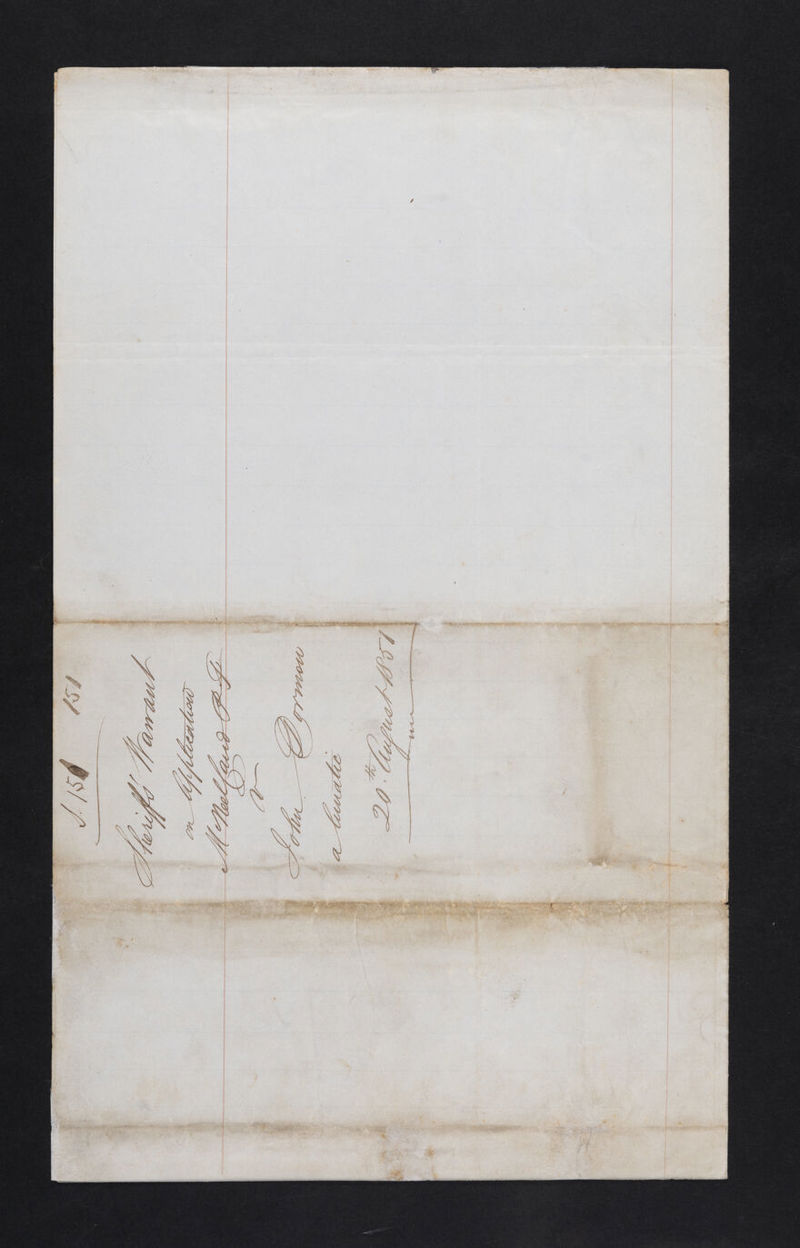 S. 15 151
Sheriffs' Warrant
on Application
McNeel Caird P F
v
John Dorman
a lunatic
20th August 1851